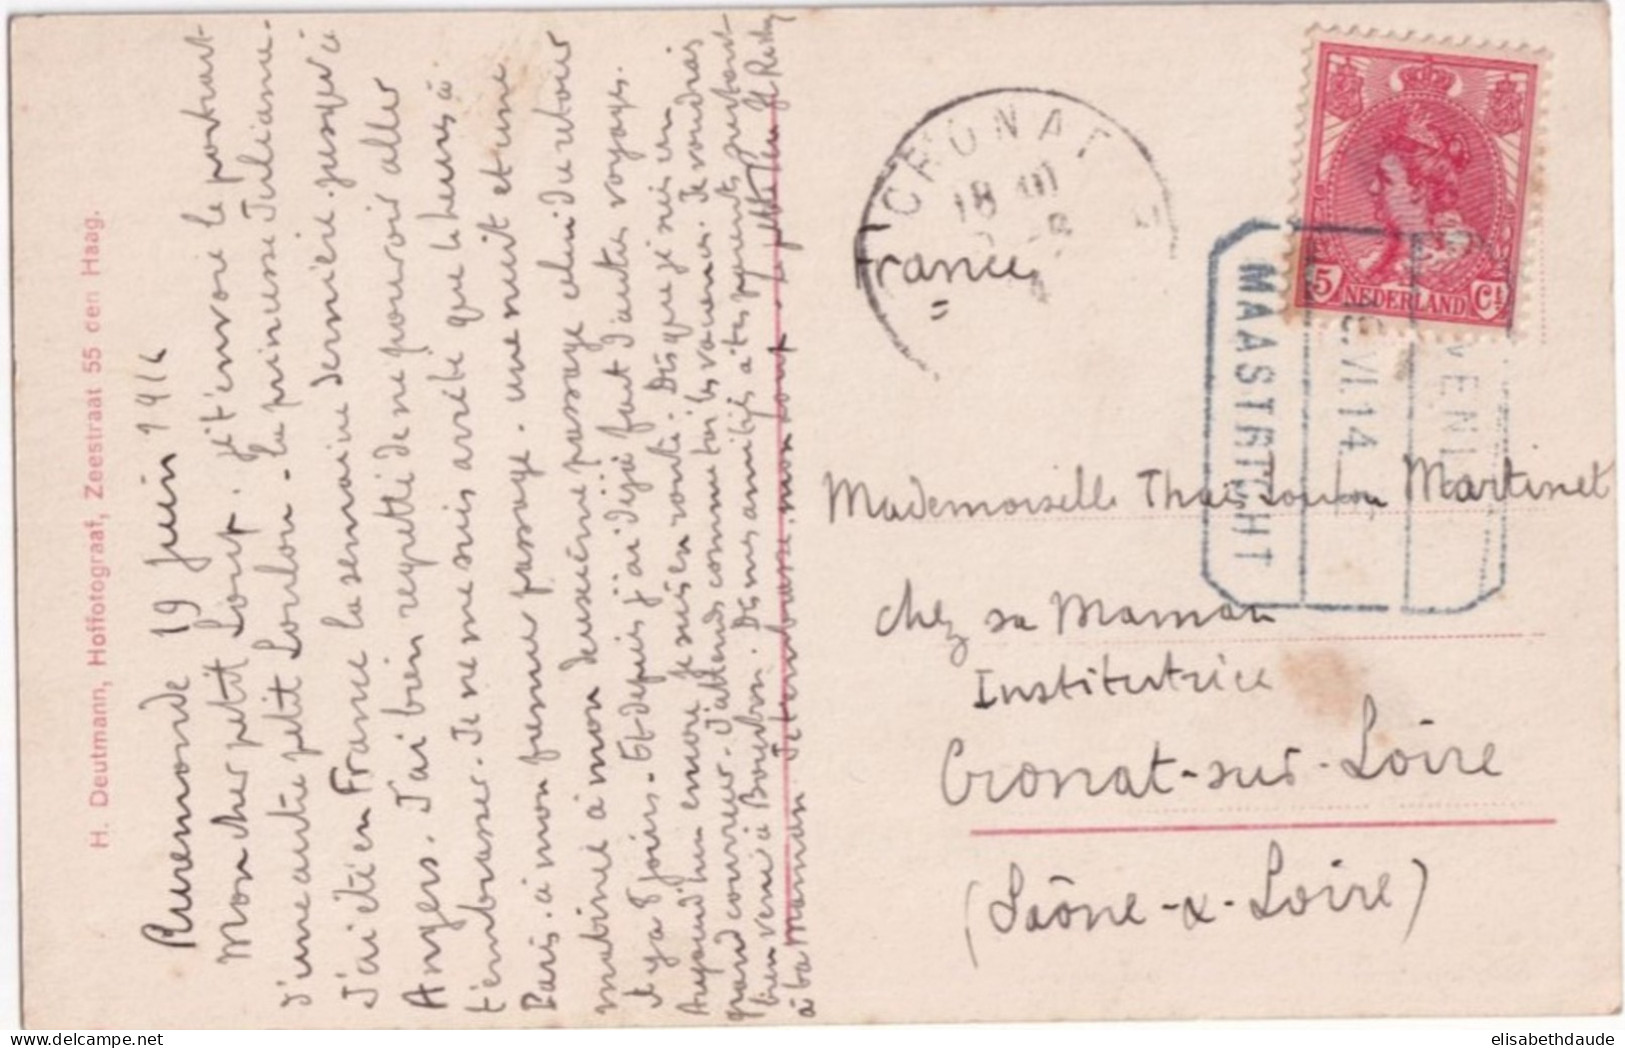 H. Deutmann, Hoffotograaf, Zeestraat 55 den Haag.
Ruremonde 19 Juin 1914
Mon cher petit Loup. je t'envoie le portrait
d'une autre petit Loulou - la princesse Juliana.
J'ai été en France la semaine dernière jusqu'à
Angers. J'ai bien regretté de ne pouvoir aller
t'embrasser. Je ne me suis arrêté que heures à
Paris. à mon passage. une nuit et une
matinée à mon deuxième passage celui du retour
il y a 8 jours. Et depuis j'ai déjà fait d'autres voyages.
Aujourd'hui encore je suis en route. Dès que je suis en
grand courrier. J'attends comme toi les vacances. Je voudrais
bien venir à Bourbon. Dis mes amitiés à tes
à ta Maman Je t'embrasse. mon Loup.
CRONAT
18
France
=
5 NEDERLAND Ct
MAASTRICHT
.VI.14
VENL
Mademoiselle Martinet
chez sa Maman
Institutrice
Cronat-sur-Loire
(Saône-&-Loire)
delcampe.net
elisabethdaude